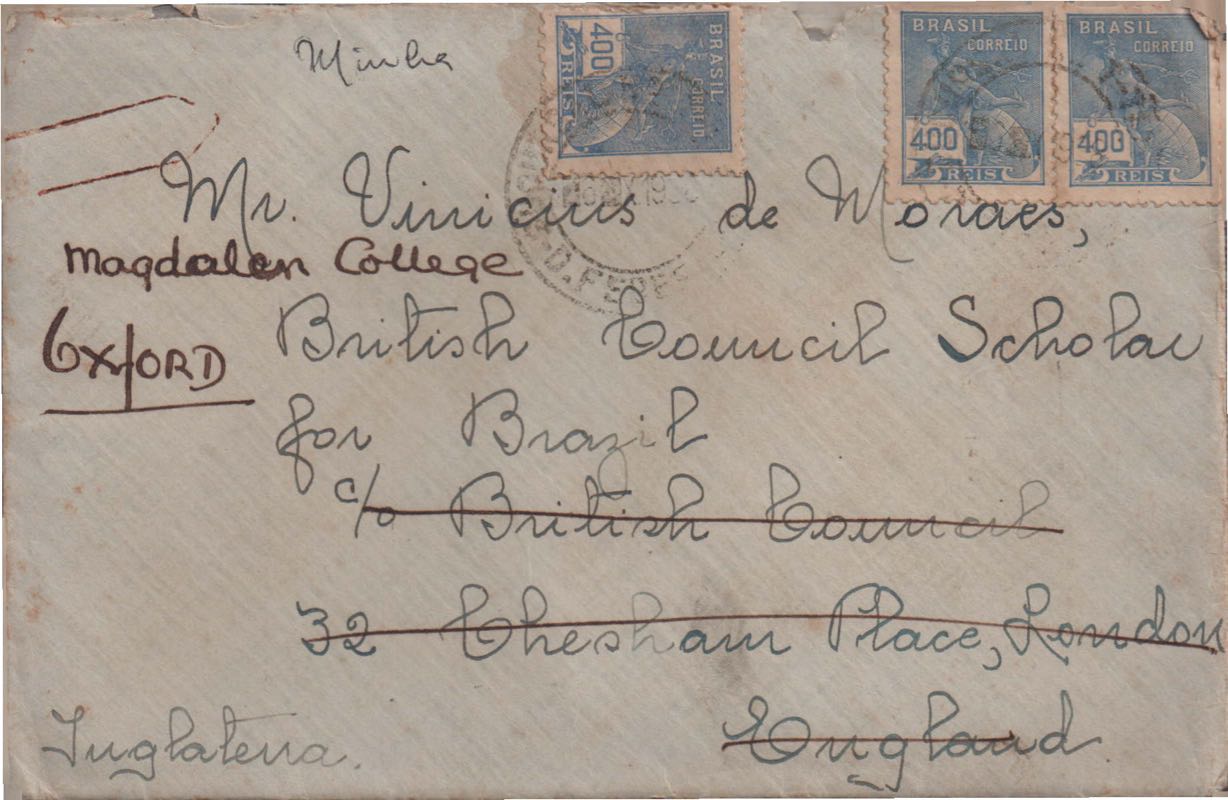 Minha
BRASIL
CORREIO
400
REIS
BRASIL
CORREIO
400
REIS
BRASIL
CORREIO
400
REIS
Mr. Vinicius de Moraes,
Magdalen College
OXFORD
British Council Scholar
for Brazil
c/o British Council
32 Chesham Place, London
England
Inglaterra.